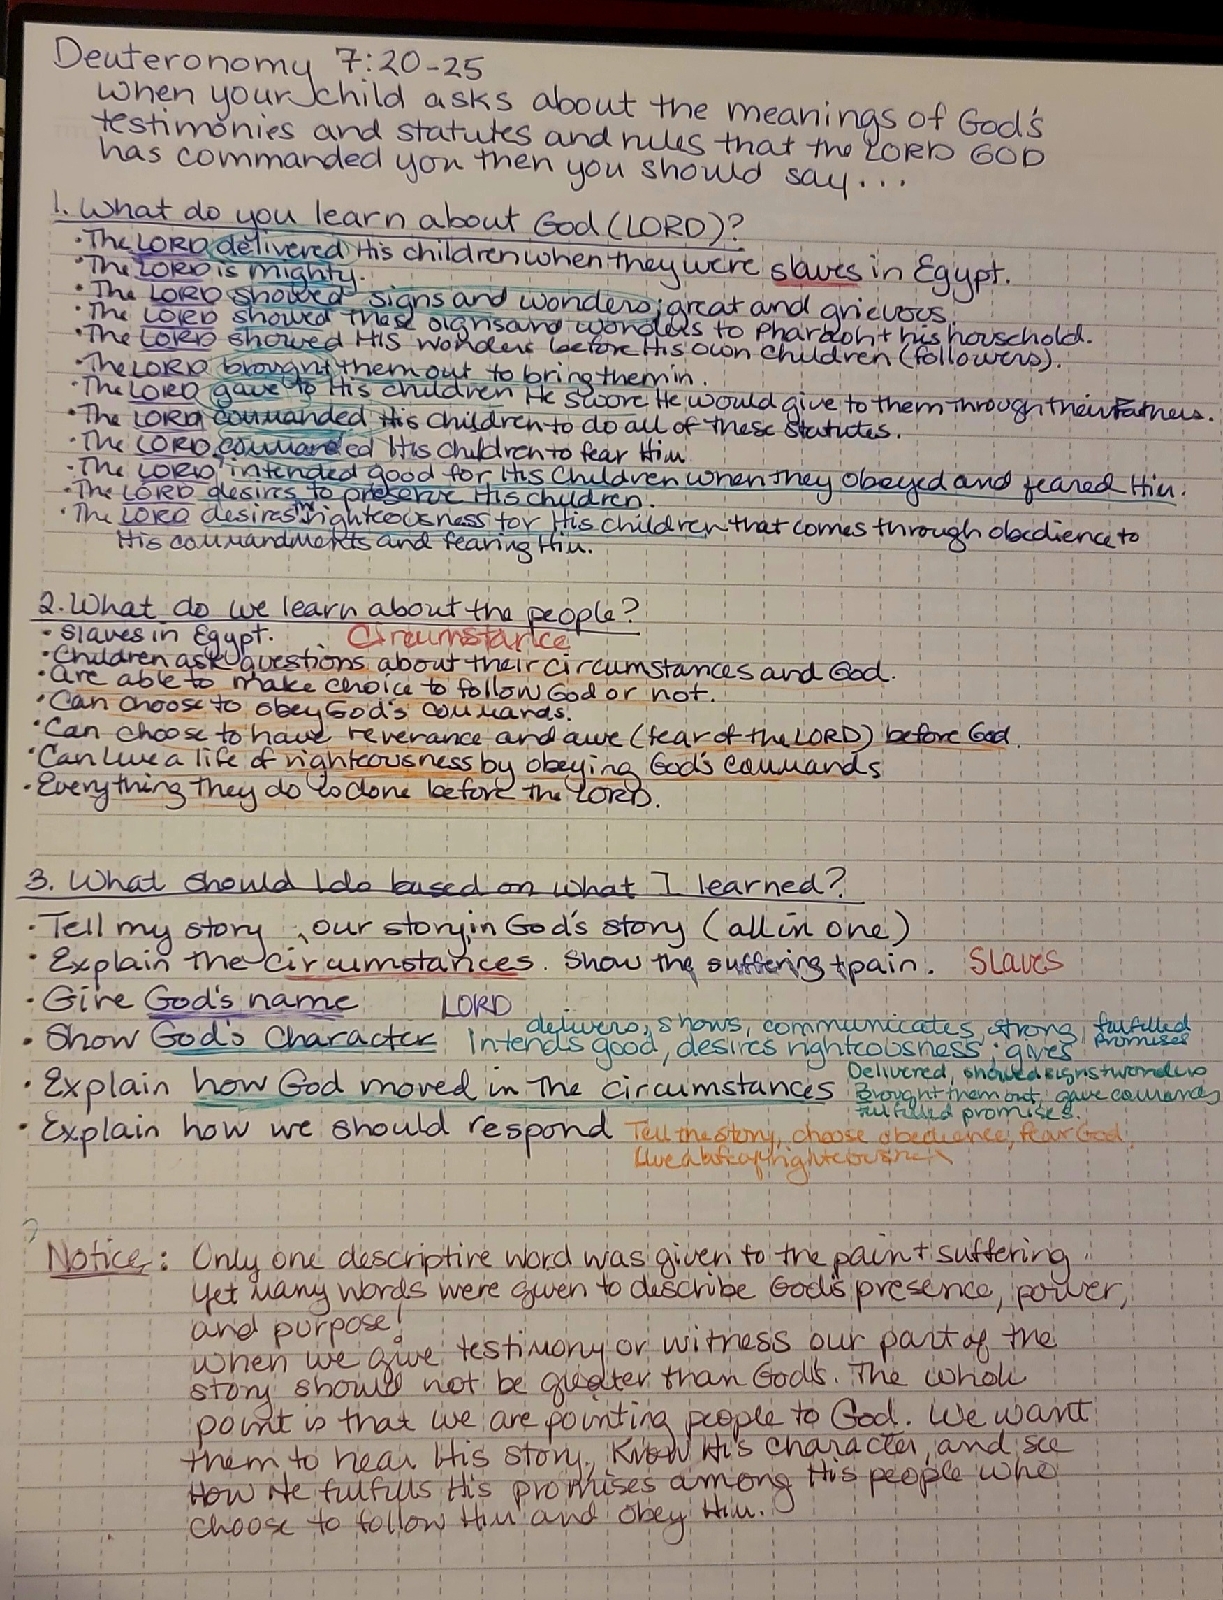 Deuteronomy 7:20-25
When your child asks about the meanings of God's
testimonies and statutes and rules that the LORD GOD
has commanded you then you should say...
1. What do you learn about God (LORD)?
• The LORD delivered His children when they were slaves in Egypt.
• The LORD is mighty.
• The LORD showed signs and wonders, great and grievous.
• The LORD showed these signs and wonders to Pharaoh + his household.
• The LORD showed His wonders before His own children (followers).
• The LORD brought them out to bring them in.
• The LORD gave to His children He swore He would give to them through their Fathers.
• The LORD commanded His children to do all of these statutes.
• The LORD commanded His children to fear Him
• The LORD intended good for His Children when they obeyed and feared Him.
• The LORD desires to preserve His children.
• The LORD desires righteousness for His children that comes through obedience to
His commandments and fearing Him.
2. What do we learn about the people?
• Slaves in Egypt. Circumstance
• Children ask questions about their circumstances and God.
• Are able to make choice to follow God or not.
• Can choose to obey God's commands.
• Can choose to have reverance and awe (fear of the LORD) before God.
• Can live a life of righteousness by obeying God's commands
• Everything they do is done before the LORD.
3. What should I do based on what I learned?
• Tell my story, our story, in God's story (all in one)
• Explain the circumstances. Show the suffering + pain. Slaves
• Give God's name LORD
• Show God's Character delivers, shows, communicates, strong, fulfilled promises
Intends good, desires righteousness, gives
• Explain how God moved in the circumstances Delivered, showed signs + wonders
Brought them out, gave commands,
fulfilled promises.
• Explain how we should respond Tell the story, choose obedience, fear God,
Live a life of righteousness
Notice: Only one descriptive word was given to the pain + suffering.
Yet many words were given to describe God's presence, power,
and purpose!
When we give testimony or witness our part of the
story should not be greater than God's. The whole
point is that we are pointing people to God. We want
them to hear His story, Know His character, and see
How He fulfills His promises among His people who
choose to follow Him and obey Him.